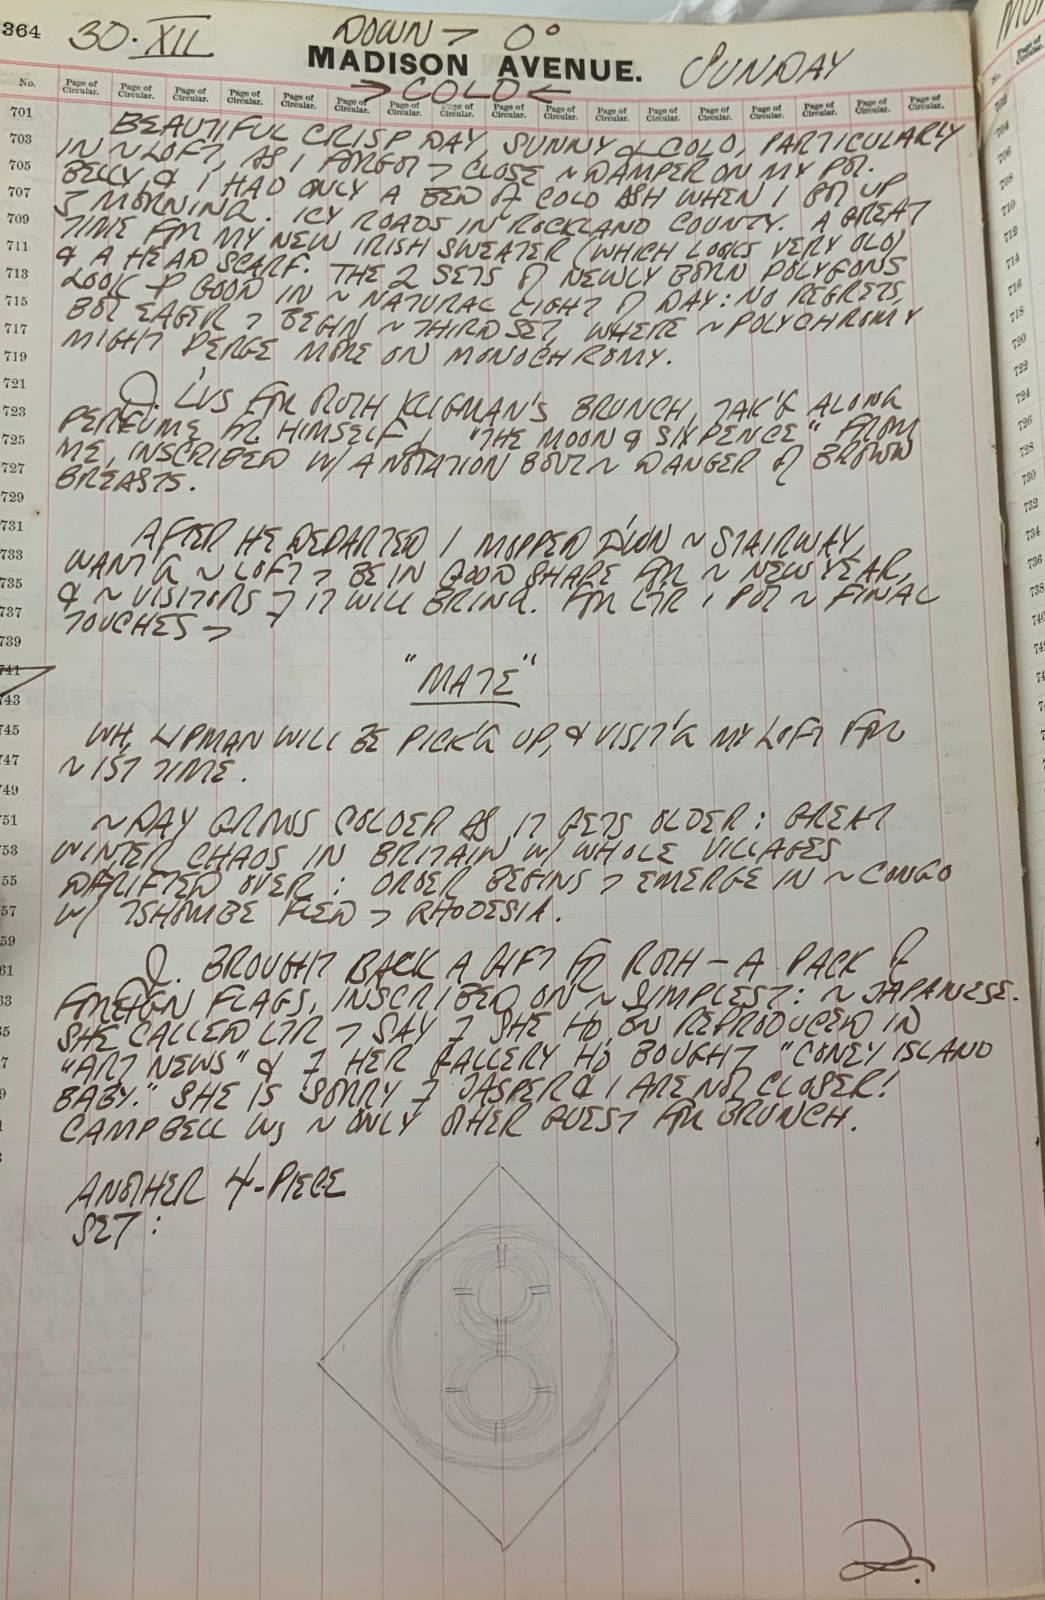 364
30·XII
DOWN > 0°
MADISON AVENUE.
SUNDAY
> COLD <
No. Page of Circular. Page of Circular. Page of Circular. Page of Circular. Page of Circular. Page of Circular. Page of Circular. Page of Circular. Page of Circular. Page of Circular. Page of Circular. Page of Circular. Page of Circular. Page of Circular. Page of Circular. Page of Circular.
701
703 BEAUTIFUL CRISP DAY, SUNNY & COLD, PARTICULARLY
705 IN ~ LOFT, AS I FORGOT > CLOSE ~ DAMPER ON MY POT.
707 BELLY & I HAD ONLY A BED OF COLD ASH WHEN I GOT UP
709 MORNING. ICY ROADS IN ROCKLAND COUNTY. A GREAT
711 TIME FOR MY NEW IRISH SWEATER (WHICH LOOKS VERY OLD)
713 & A HEAD SCARF. THE 2 SETS OF NEWLY BORN POLYGONS
715 LOOK GOOD IN ~ NATURAL LIGHT OF DAY: NO REGRETS,
717 BOT EAGER > BEGIN ~ THIRD SET, WHERE ~ POLYCHROMY
719 MIGHT VERGE MORE ON MONOCHROMY.
721
723 J. LVS FOR RUTH KLIGMAN'S BRUNCH, TAK'G ALONG
725 PERFUME FR HIMSELF & "THE MOON & SIXPENCE" FROM
727 ME, INSCRIBED W/ A NOTATION BOUT ~ DANGER OF BROWN
729 BREASTS.
731
AFTER HE DEPARTED I MOPPED DOWN ~ STAIRWAY,
733 WANT'G ~ LOFT > BE IN GOOD SHAPE FOR ~ NEW YEAR,
735 & ~ VISITORS IT WILL BRING. FOR LTR I POT ~ FINAL
737 TOUCHES >
739
741 "MATE"
743
745 WH. LIPMAN WILL BE PICK'G UP, & VISIT'G MY LOFT FOR
747 ~ 1ST TIME.
749
751 ~ DAY GROWS COLDER AS IT GETS OLDER: GREAT
753 WINTER CHAOS IN BRITAIN W/ WHOLE VILLAGES
755 DRIFTED OVER: ORDER BEGINS > EMERGE IN ~ CONGO
757 W/ TSHOMBE FLED > RHODESIA.
759
761 J. BROUGHT BACK A GIFT FR ROTH — A PACK OF
763 FOREIGN FLAGS, INSCRIBED ON ~ SIMPLEST: ~ JAPANESE.
SHE CALLED LTR > SAY SHE HD BN REPRODUCED IN
"ART NEWS" & HER GALLERY HD BOUGHT "CONEY ISLAND
BABY." SHE IS SORRY JASPER & I ARE NOT CLOSER!
CAMPBELL WS ~ ONLY OTHER GUEST FOR BRUNCH.
ANOTHER 4-PIECE
SET: